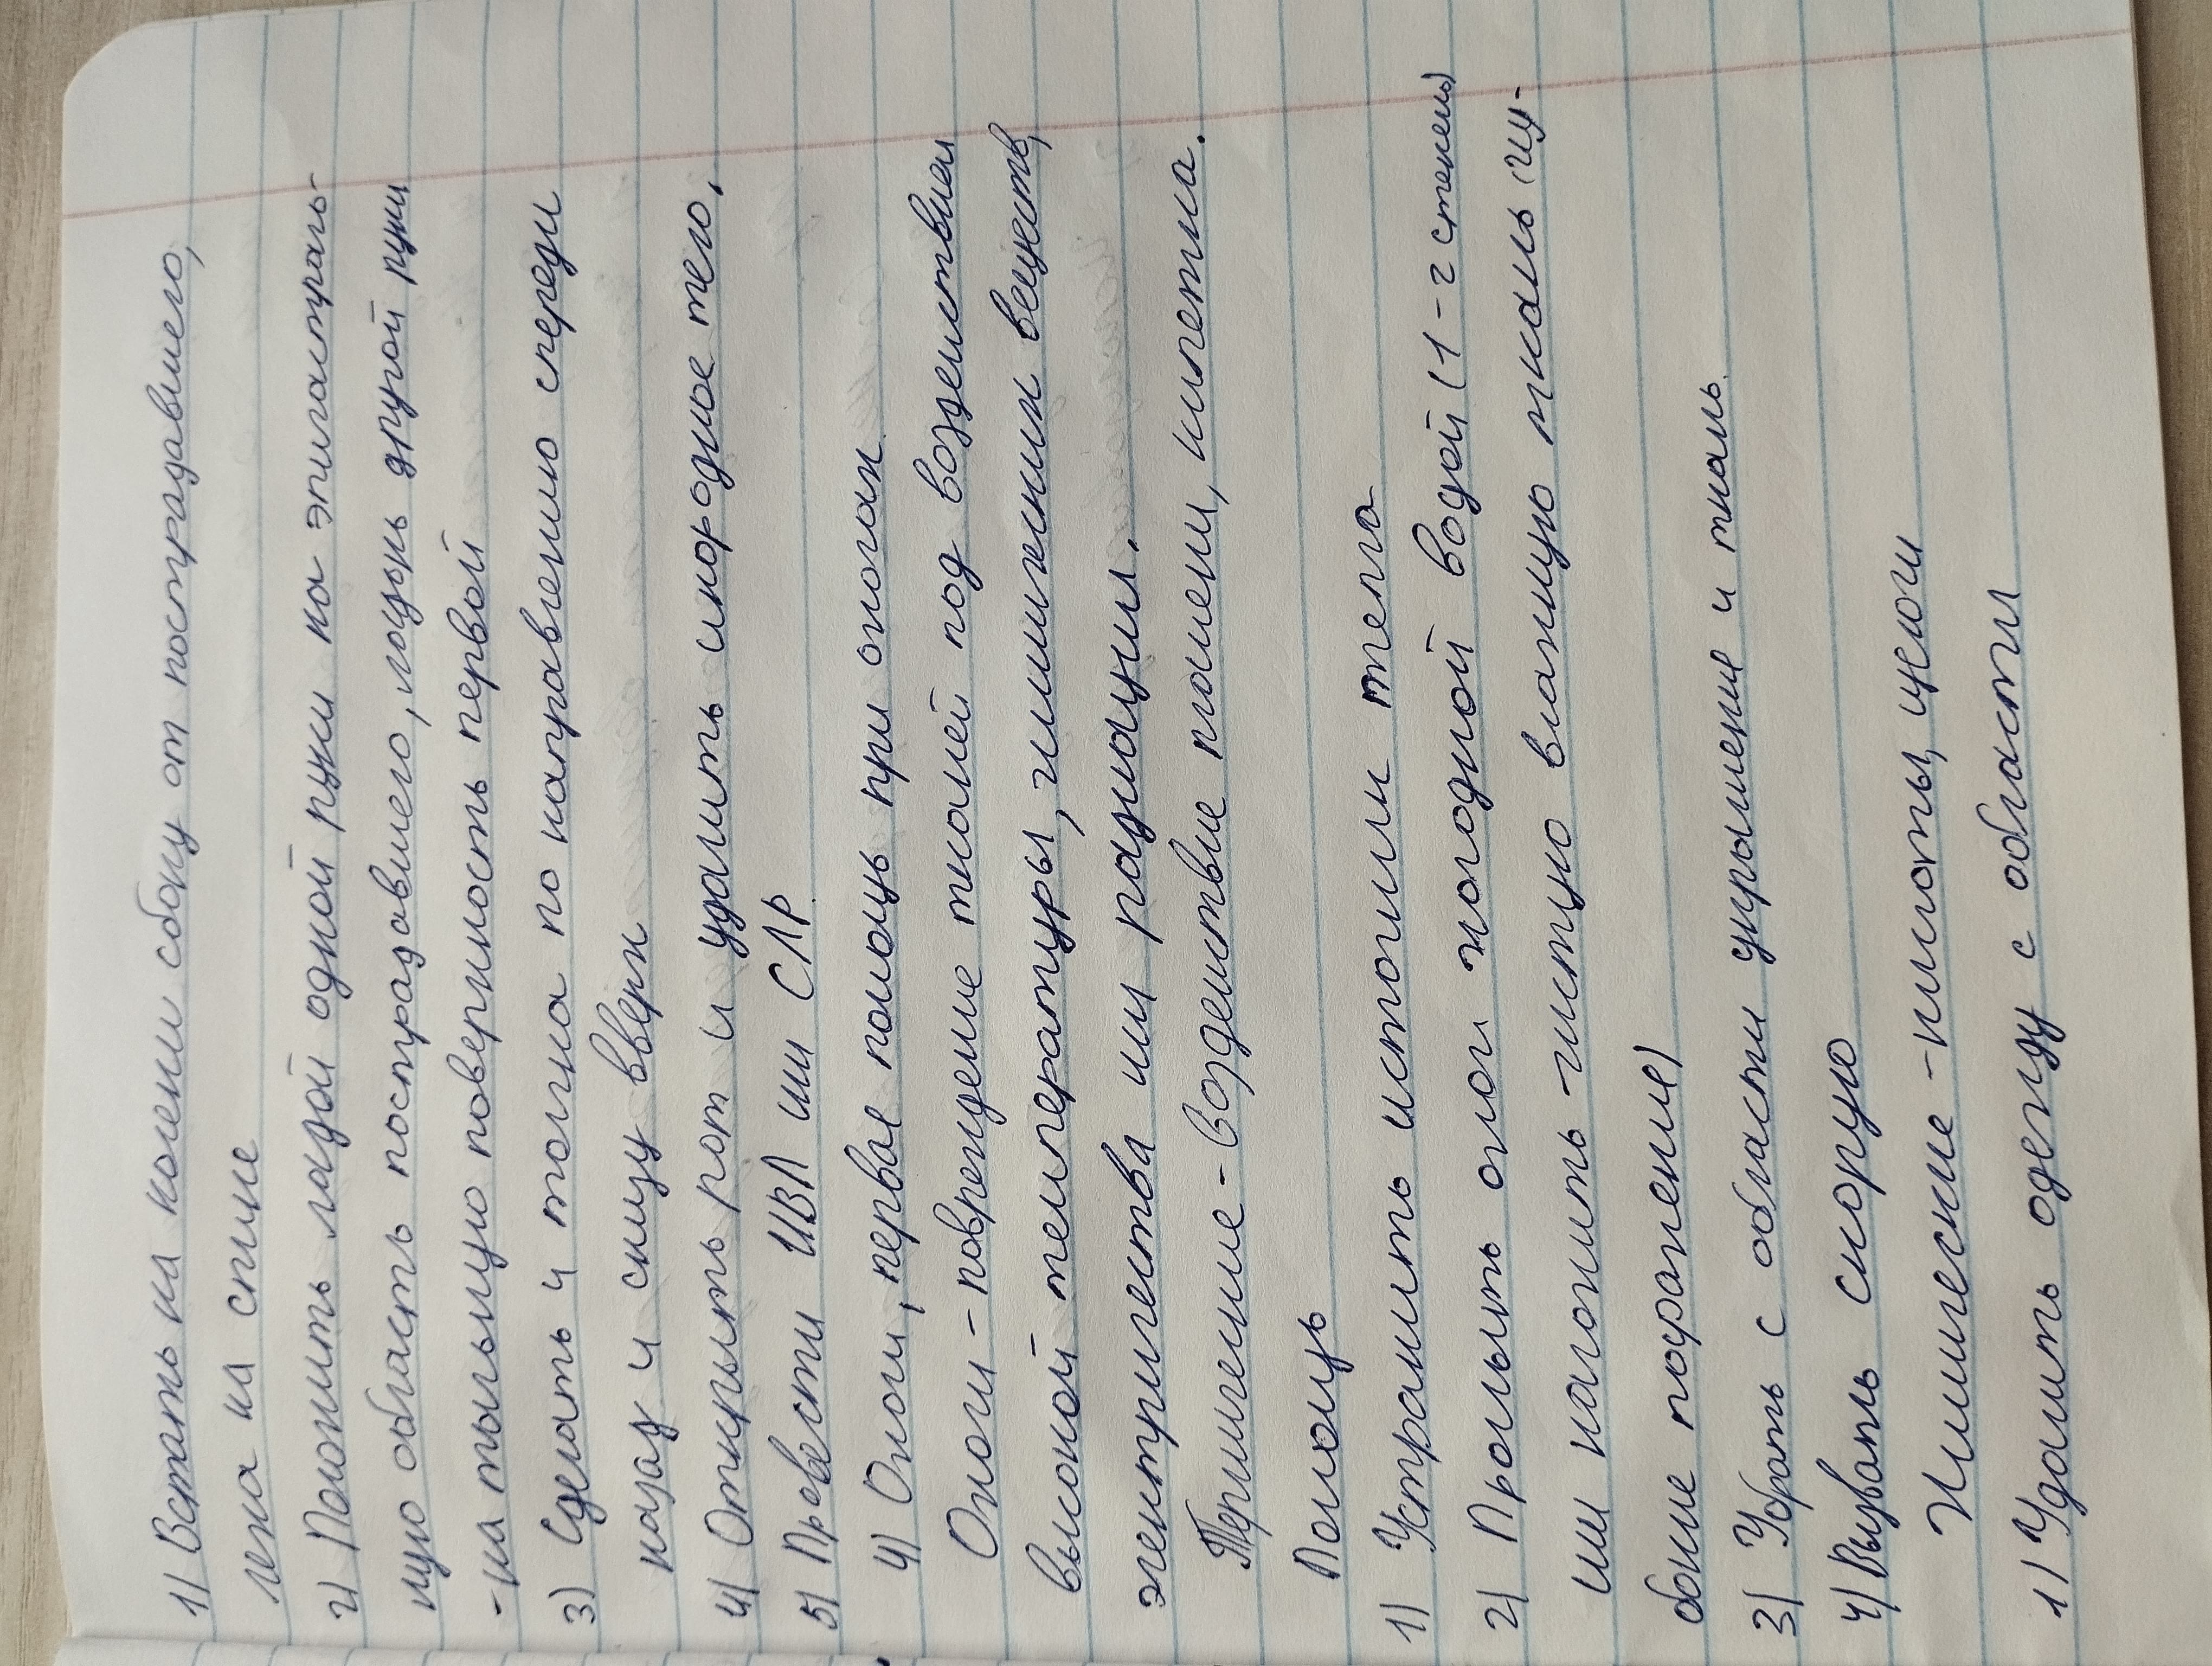 1) Встать на колени сбоку от пострадавшего,
лежа на спине
2) Положить ладой одной руки на эпигастраль-
ную область пострадавшего, лодонь другой руки
- на тыльную поверхность первой
3) Сделать 4 толчка по направлению спереди
назад и снизу вверх
4) Открыть рот и удалить инородное тело,
5) Провести ИВЛ или СЛР
4) Ожоги, первая помощь при ожогах
Ожоги - повреждение тканей под воздействием
высокой температуры, химических веществ,
электричества или радиации.
Термические - воздействие пламени, кипетка.
Помощь
1) Устранить источник тепла
2) Промыть ожог холодной водой (1-2 степень)
или наложить чистую влажную ткань (глу-
бокие поражение)
3) Убрать с области украшение и ткань.
4) Вызвать скорую
Химические - кислоты, щелочи
1) Удалить одежду с области